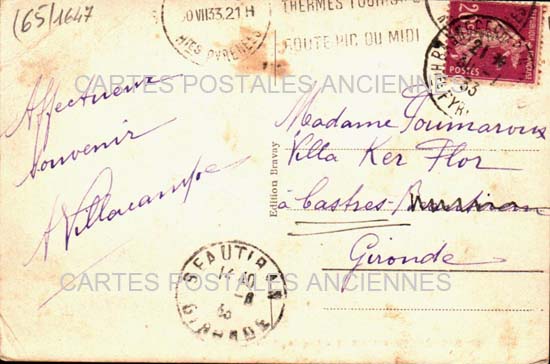 (65)/1647
30 VII 33.21 H
Htes PYRENEES
THERMES TOURISME
ROUTE PIC DU MIDI
2
POSTES
21
33
CARTES POSTALES ANCIENNES
Affectueux
souvenir
A Villacampe
Edition Bravay
Madame Doumaroux
Villa Ker Flor
à Castres-
Gironde
BEAUTIRAN
14 40
1-8
33
GIRONDE
CARTES POSTALES ANCIENNES